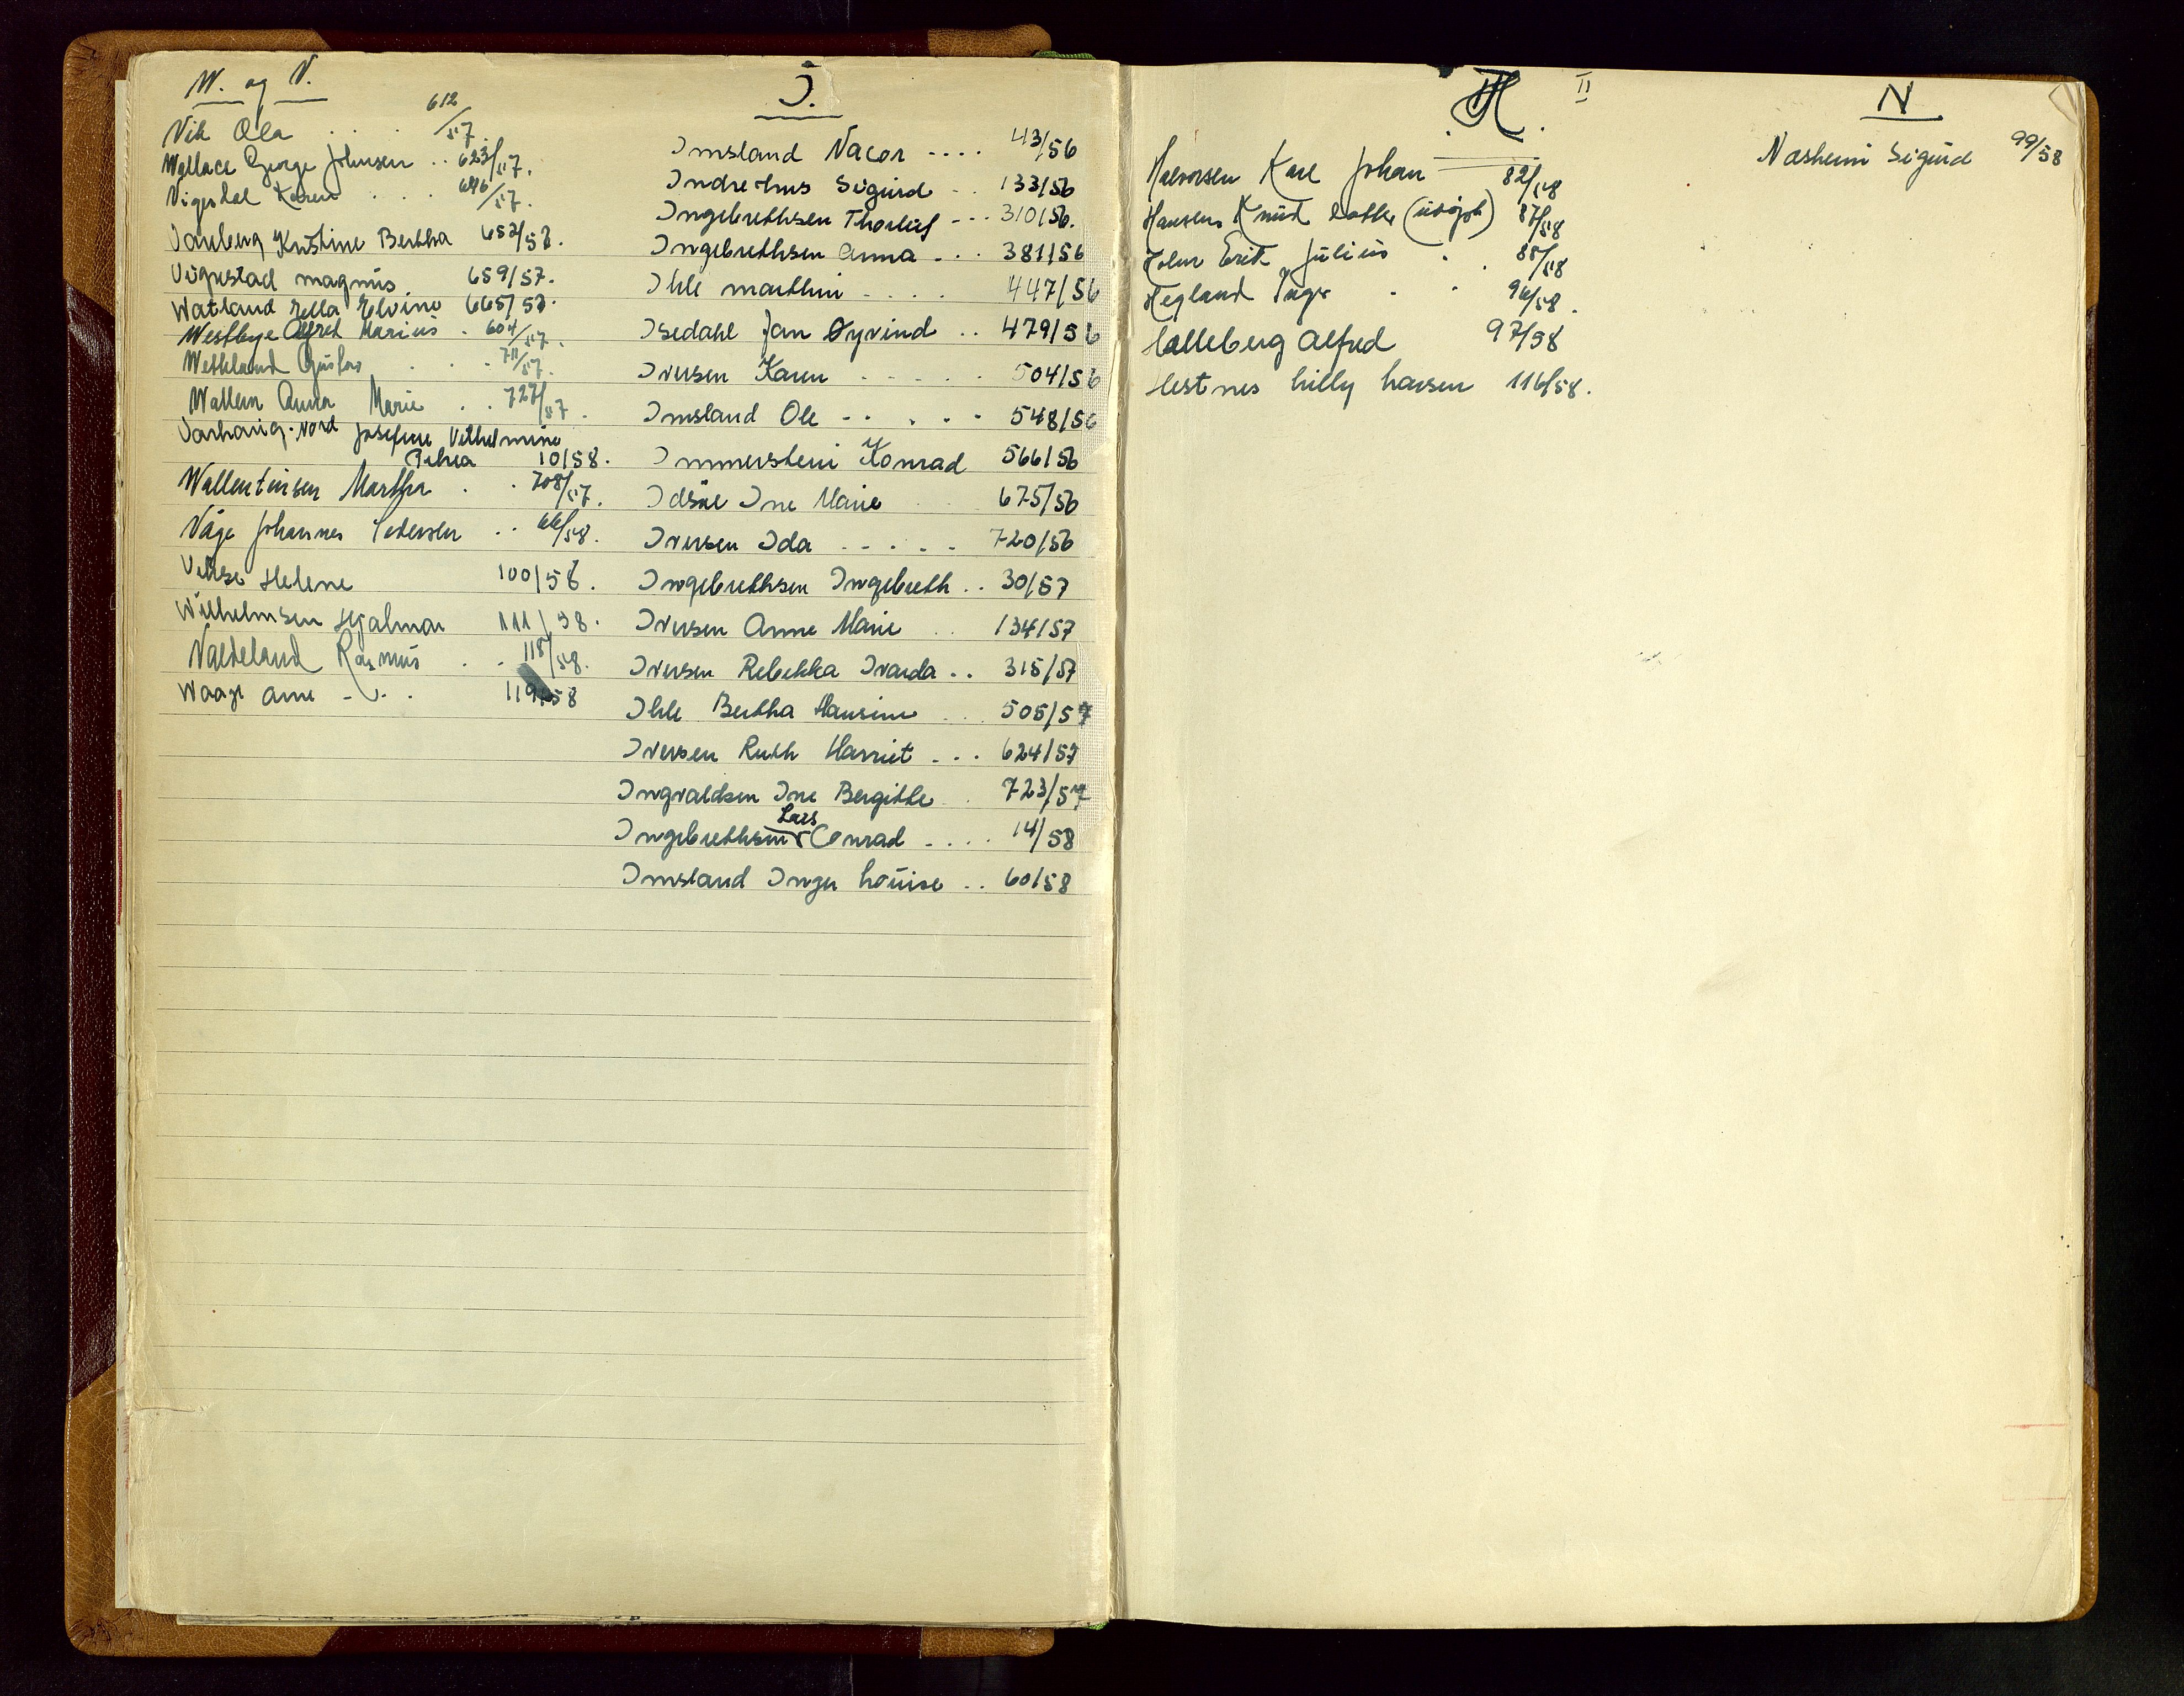 W. og V.
Vik Ola . . . 612/57
Wallace George Johnsen . . 623/57.
Vigestal Karen . . . 646/57.
Varberg Kristine Bertha 652/57.
Vignestad magnus. 659/57.
Watland Ella Elvine 665/57.
Westbye Alfred Marius . 604/57.
Wetheland Gustav . . . 711/57.
Wallem Anna Marie . . 727/57.
Varhaug-Nord Josefine Vilhelmine
Petrea 10/58.
Wallentinsen Martha . . 708/57.
Våge Johannes Pedersen . . 66/58.
Helene 100/58.
Wilhelmsen Hjalmar 111/58.
Valdeland Rasmus . . 118/58.
Waage Arne - . . 119/58
I.
Imsland Nacor - - - - 43/56
Indrehus Sigurd - . 133/56
Ingebrethsen Thorleif - - - 310/56.
Ingebrethsen Anna - . . 381/56
Ihle marthin - . . . 447/56
Isedahl Jan Øyvind . . 479/56
Iversen Karen - - - - - 504/56
Imsland Ole - - . . - 548/56
Immerstein Konrad 566/56
Idsøe Ine Marie 675/56
Iversen Ida - - . - - 720/56
Ingebrethsen Ingebreth . . 30/57
Iversen Anne Marie . . 134/57
Iversen Rebekka Ivarda . . 315/57
Ihle Bertha Hansine . . . 505/57
Iversen Ruth Harriet - . . 624/57
Ingvaldsen Ine Bergitte . . 723/57
Lars
Ingebrethsen Conrad - . . . 14/58
Imsland Inger Louise . . 60/58
H. II
Halvorsen Karl Johan 82/58
Hansens Knud Datter (udøpt) 87/58
Holm Erik Julius . . 85/58
Hegland Inger . . 96/58.
Halleberg Alfred 97/58
Hestnes Lilly Larsen 116/58.
N
Nasheim Sigurd 99/58